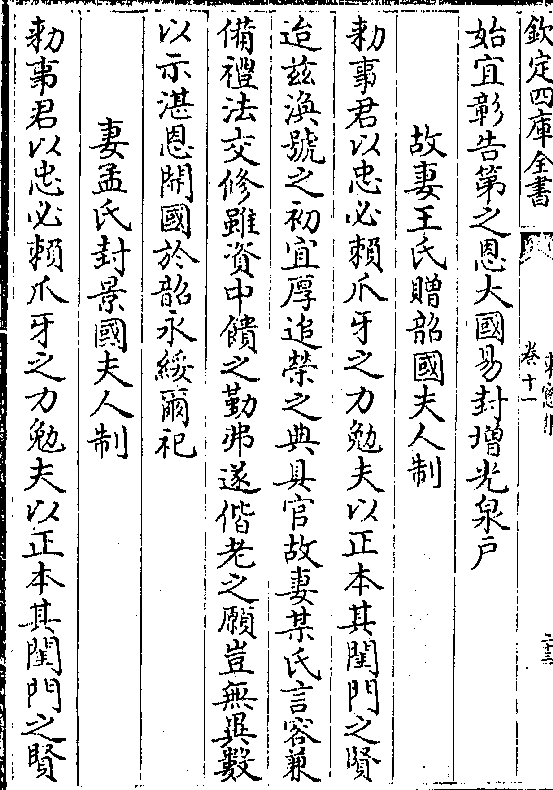 欽定四庫全書
卷十一
二十三
始宜彰告第之恩大國易封增光泉戸
故妻王氏贈韶國夫人制
勑事君以忠必頼爪牙之力勉夫以正本其閨門之賢
迨兹渙號之初宜厚追榮之典具官故妻某氏言容兼
備禮法交修雖資中饋之勤弗遂偕老之願豈無異數
以示湛恩開國於韶永綏爾祀
妻孟氏封景國夫人制
勑事君以忠必頼爪牙之力勉夫以正本其閨門之賢